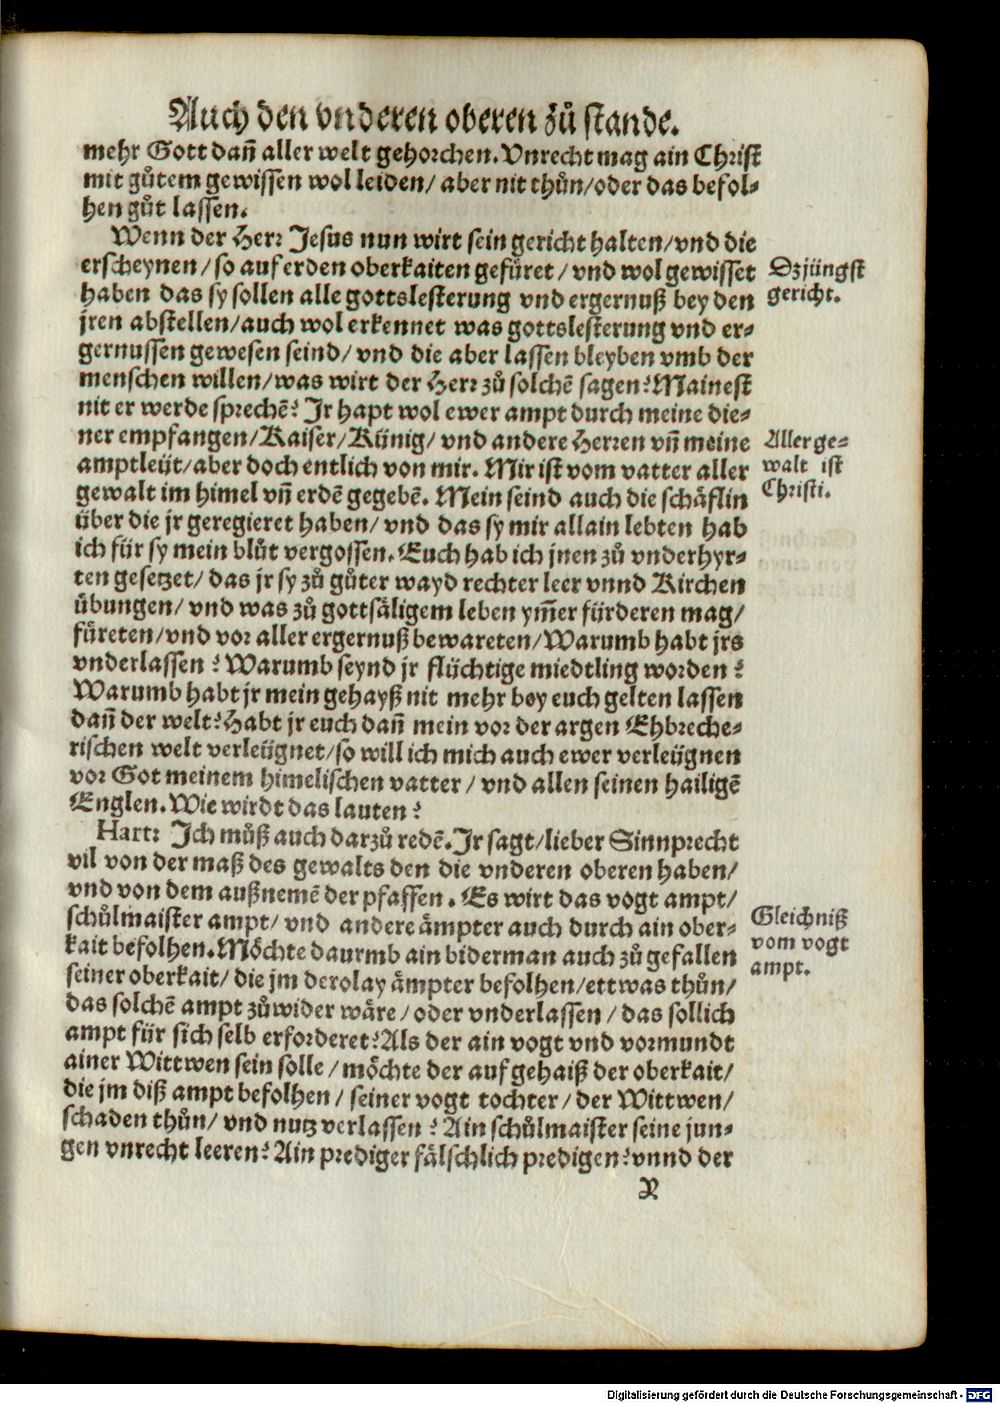 Auch den vnderen oberen zů stande.
mehr Gott dañ aller welt gehorchen. Vnrecht mag ain Christ
mit gůtem gewissen wol leiden/ aber nit thůn/ oder das befol-
hen gůt lassen.
Wenn der Herr Jesus nun wirt sein gericht halten/ vnd die
erscheynen/ so auf erden oberkaiten gefüret/ vnd wol gewisset
haben das sy sollen alle gottslesterung vnd ergernuß bey den
jren abstellen/ auch wol erkennet was gottslesterung vnd er-
gernussen gewesen seind/ vnd die aber lassen bleyben vmb der
menschen willen/ was wirt der Herr zů solchē sagen? Mainest
nit er werde sprechē? Jr hapt wol ewer ampt durch meine die-
ner empfangen/ Kaiser/ Künig/ vnd andere Herren vñ meine
amptleüt/ aber doch entlich von mir. Mir ist vom vatter aller
gewalt im himel vñ erdē gegebē. Mein seind auch die schäflin
über die jr geregieret haben/ vnd das sy mir allain lebten hab
ich für sy mein blůt vergossen. Euch hab ich jnen zů vnderhyr-
ten gesetzet/ das jr sy zů gůter wayd rechter leer vnnd Kirchen
übungen/ vnd was zů gottsäligem leben ym̃er fürderen mag/
füreten/ vnd vor aller ergernuß bewareten/ Warumb habt jrs
vnderlassen? Warumb seynd jr flüchtige miedtling worden?
Warumb habt jr mein gehayß nit mehr bey euch gelten lassen
dañ der welt? Habt jr euch dañ mein vor der argen Ehbreche-
rischen welt verleügnet/ so will ich mich auch ewer verleügnen
vor Got meinem himelischen vatter/ vnd allen seinen hailigē
Englen. Wie wirdt das lauten?
Hartr Ich můß auch darzů redē. Jr sagt/ lieber Sinnprecht
vil von der maß des gewalts den die vnderen oberen haben/
vnd von dem außnemē der pfaffen. Es wirt das vogt ampt/
schůlmaister ampt/ vnd andere ämpter auch durch ain ober-
kait befolhen. Möchte daurmb ain biderman auch zů gefallen
seiner oberkait/ die jm derolay ämpter befolhen/ ettwas thůn/
das solchē ampt zůwider wäre/ oder vnderlassen/ das sollich
ampt für sich selb erforderet? Als der ain vogt vnd vormundt
ainer Wittwen sein solle/ möchte der auf gehaiß der oberkait/
die jm diß ampt befolhen/ seiner vogt tochter/ der Wittwen/
schaden thůn/ vnd nutz verlassen? Ain schůlmaister seine jun-
gen vnrecht leeren? Ain prediger fälschlich predigen? vnnd der
X
Dz jüngst
gericht.
Aller ge-
walt ist
Christi.
Gleichniß
vom vogt
ampt.
Digitalisierung gefördert durch die Deutsche Forschungsgemeinschaft - DFG